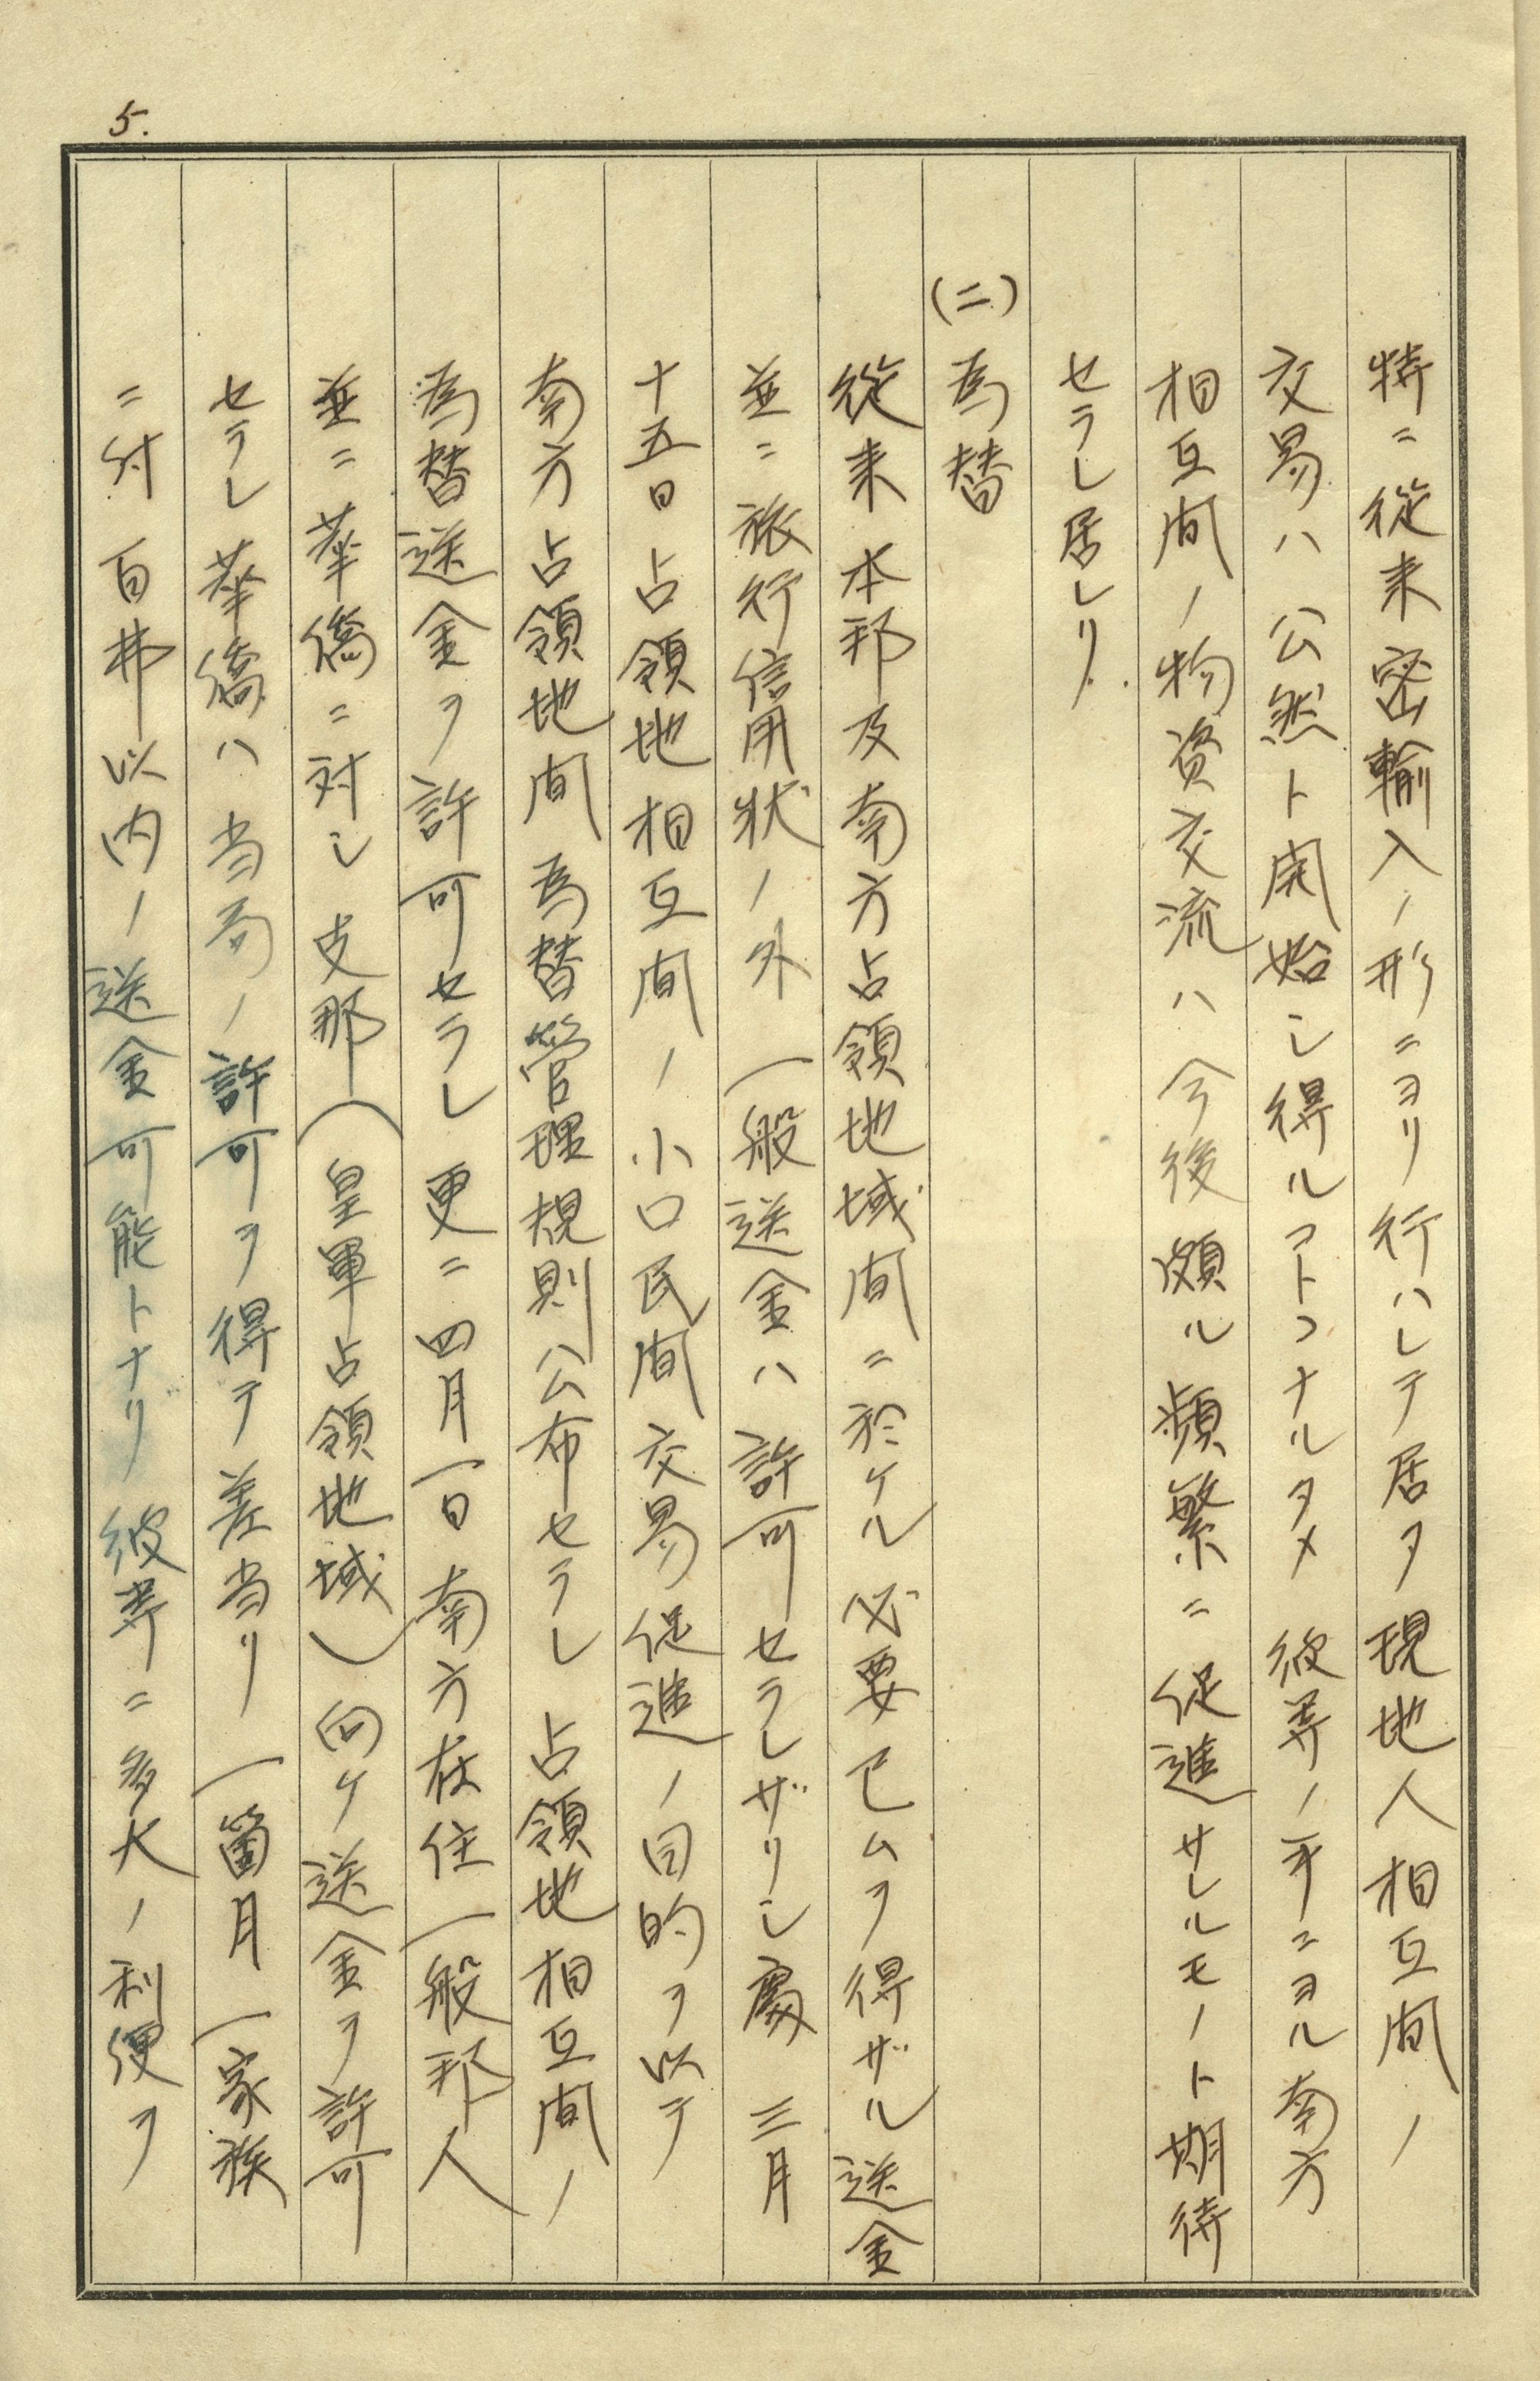 5.
特ニ従来密輸入ノ形ニヨリ行ハレテ居タ現地人相互間ノ
交易ハ公然ト開始シ得ルコトコナルタメ彼等ノ手ニヨル南方
相互間ノ物資交流ハ今後頗ル頻繁ニ促進サレルモノト期待
セラレ居レリ.
(二)為替
従来本邦及南方占領地域間ニ於ケル必要已ムヲ得ザル送金
並ニ旅行信用状ノ外一般送金ハ許可セラレザリシ處三月
十五日占領地相互間ノ小口民間交易促進ノ目的ヲ以テ
南方占領地間為替管理規則公布セラレ占領地相互間ノ
為替送金ヲ許可セラレ更ニ四月一日南方在住一般邦人
並ニ華僑ニ対シ支那(皇軍占領地域)向ケ送金ヲ許可
セラレ華僑ハ当局ノ許可ヲ得テ差当リ一箇月一家族
ニ付百弗以内ノ送金可能トナリ彼等ニ多大ノ利便ヲ